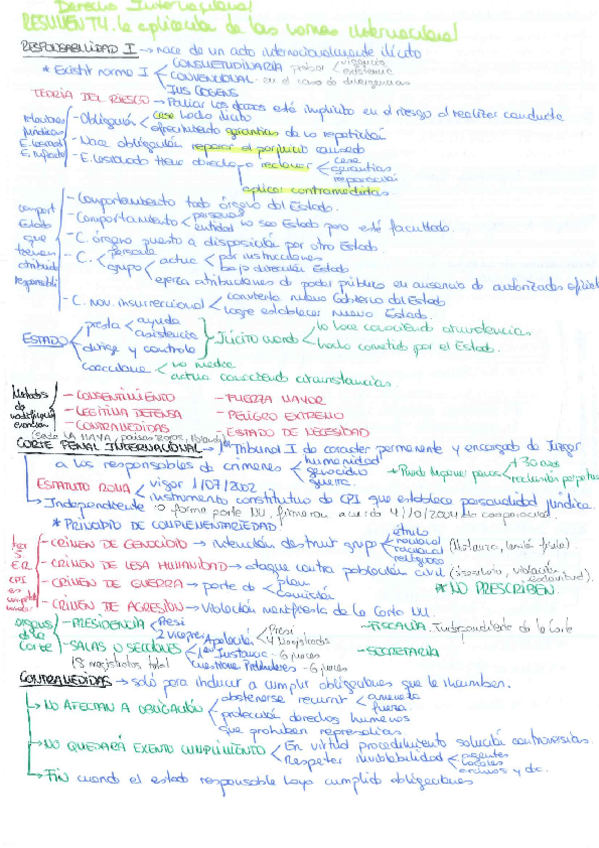 Derecho Internacional
RESUMEN T4. la aplicación de las normas internacional
RESPONSABILIDAD I → nace de un acto internacionalmente ilícito
* Existir norma I
CONSUETUDINARIA probar vigencia existencia
CONVENCIONAL - en el caso de divergencias
IUS COGENS
TEORÍA DEL RIESGO → Paliar los daños está implícito en el riesgo al realizar conducta
Relaciones jurídicas E. lesionado E. infractor
- Obligación cese hecho ilícito
ofrecimiento garantías de no repetición
- Nace obligación reparar el perjuicio causado
- E. lesionado tiene derecho a reclamar cese garantías reparación
aplicar contramedidas
comport Estado que tienen atribuida responsabil
- Comportamiento todo órgano del Estado.
- Comportamiento persona entidad no sea Estado pero esté facultado.
- C. órgano puesto a disposición por otro Estado
- C. persona grupo actúe por instrucciones bajo dirección Estado
ejerza atribuciones de poder público en ausencia de autoridades oficiales
- C. mov. insurreccional convierta nuevo Gobierno del Estado
logre establecer nuevo Estado.
ESTADO
presta ayuda asistencia
dirige y controle
Ilícito cuando lo hace conociendo circunstancias
hecho cometido por el Estado.
coaccione no medie
actúa conociendo circunstancias.
- CONSENTIMIENTO - FUERZA MAYOR
- LEGÍTIMA DEFENSA - PELIGRO EXTREMO
- CONTRAMEDIDAS - ESTADO DE NECESIDAD
(sede LA HAYA, países bajos, Holanda)
CORTE PENAL INTERNACIONAL → * Tribunal I de carácter permanente y encargado de Juzgar
a los responsables de crímenes humanidad genocidio guerra.
* Puede imponer penas +30 años reclusión perpetua
ESTATUTO ROMA vigor 1/07/2002
instrumento constitutivo de CPI que establece personalidad jurídica.
→ Independiente no forma parte NU, firmaron acuerdo 4/10/2004 de cooperación.
* PRINCIPIO DE COMPLEMENTARIEDAD
- CRIMEN DE GENOCIDIO → intención destruir grupo étnico nacional racial religioso
- CRIMEN DE LESA HUMANIDAD → ataque contra población civil
- CRIMEN DE GUERRA → parte de plan comisión
* NO PRESCRIBEN.
- CRIMEN DE AGRESIÓN → Violación manifiesta de la Carta NU.
órganos de la Corte
- PRESIDENCIA Presi 2 vicepresi
- FISCALÍA. Independiente de la Corte
- SALAS O SECCIONES Apelación Presi 4 Magistrados
1ª Instancia - 6 jueces
Cuestiones Preliminares - 6 jueces
18 magistrados total
- SECRETARÍA
CONTRAMEDIDAS → solo para inducir a cumplir obligaciones que le incumben.
→ NO AFECTAN A OBLIGACIÓN abstenerse recurrir amenaza fuerza
protección derechos humanos
que prohíben represalias
→ NO QUEDARÁ EXENTO CUMPLIMIENTO En virtud procedimiento solución controversias.
Respetar inviolabilidad agentes locales archivos y doc.
→ FIN cuando el estado responsable haya cumplido obligaciones